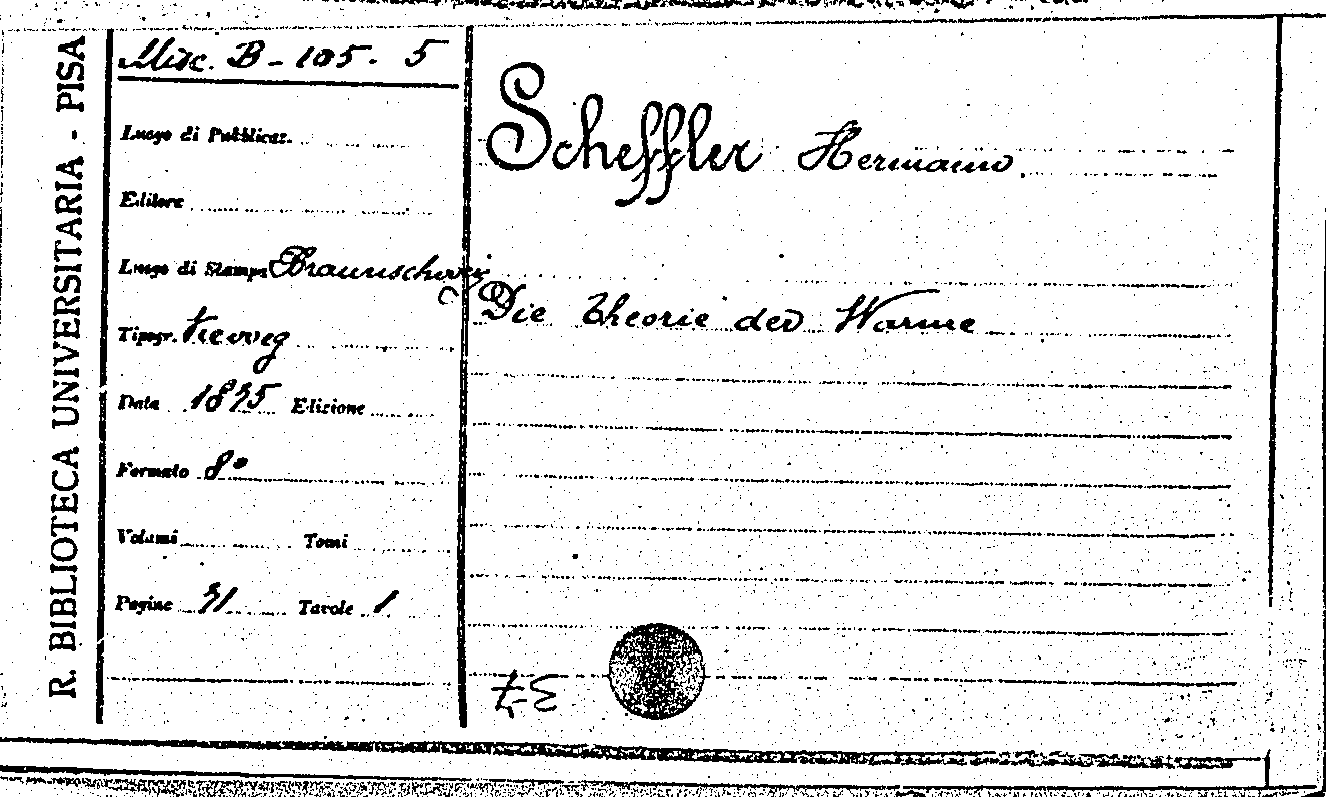 R. BIBLIOTECA UNIVERSITARIA - PISA
Misc. B - 105. 5
Luogo di Pubblicaz.
Editore
Luogo di Stampa Braunschweig
Tipogr. Vieweg
Data 1875 Edizione
Formato 8°
Volumi Tomi
Pagine Tavole 1
Scheffler Hermann
Die Theorie der Warme